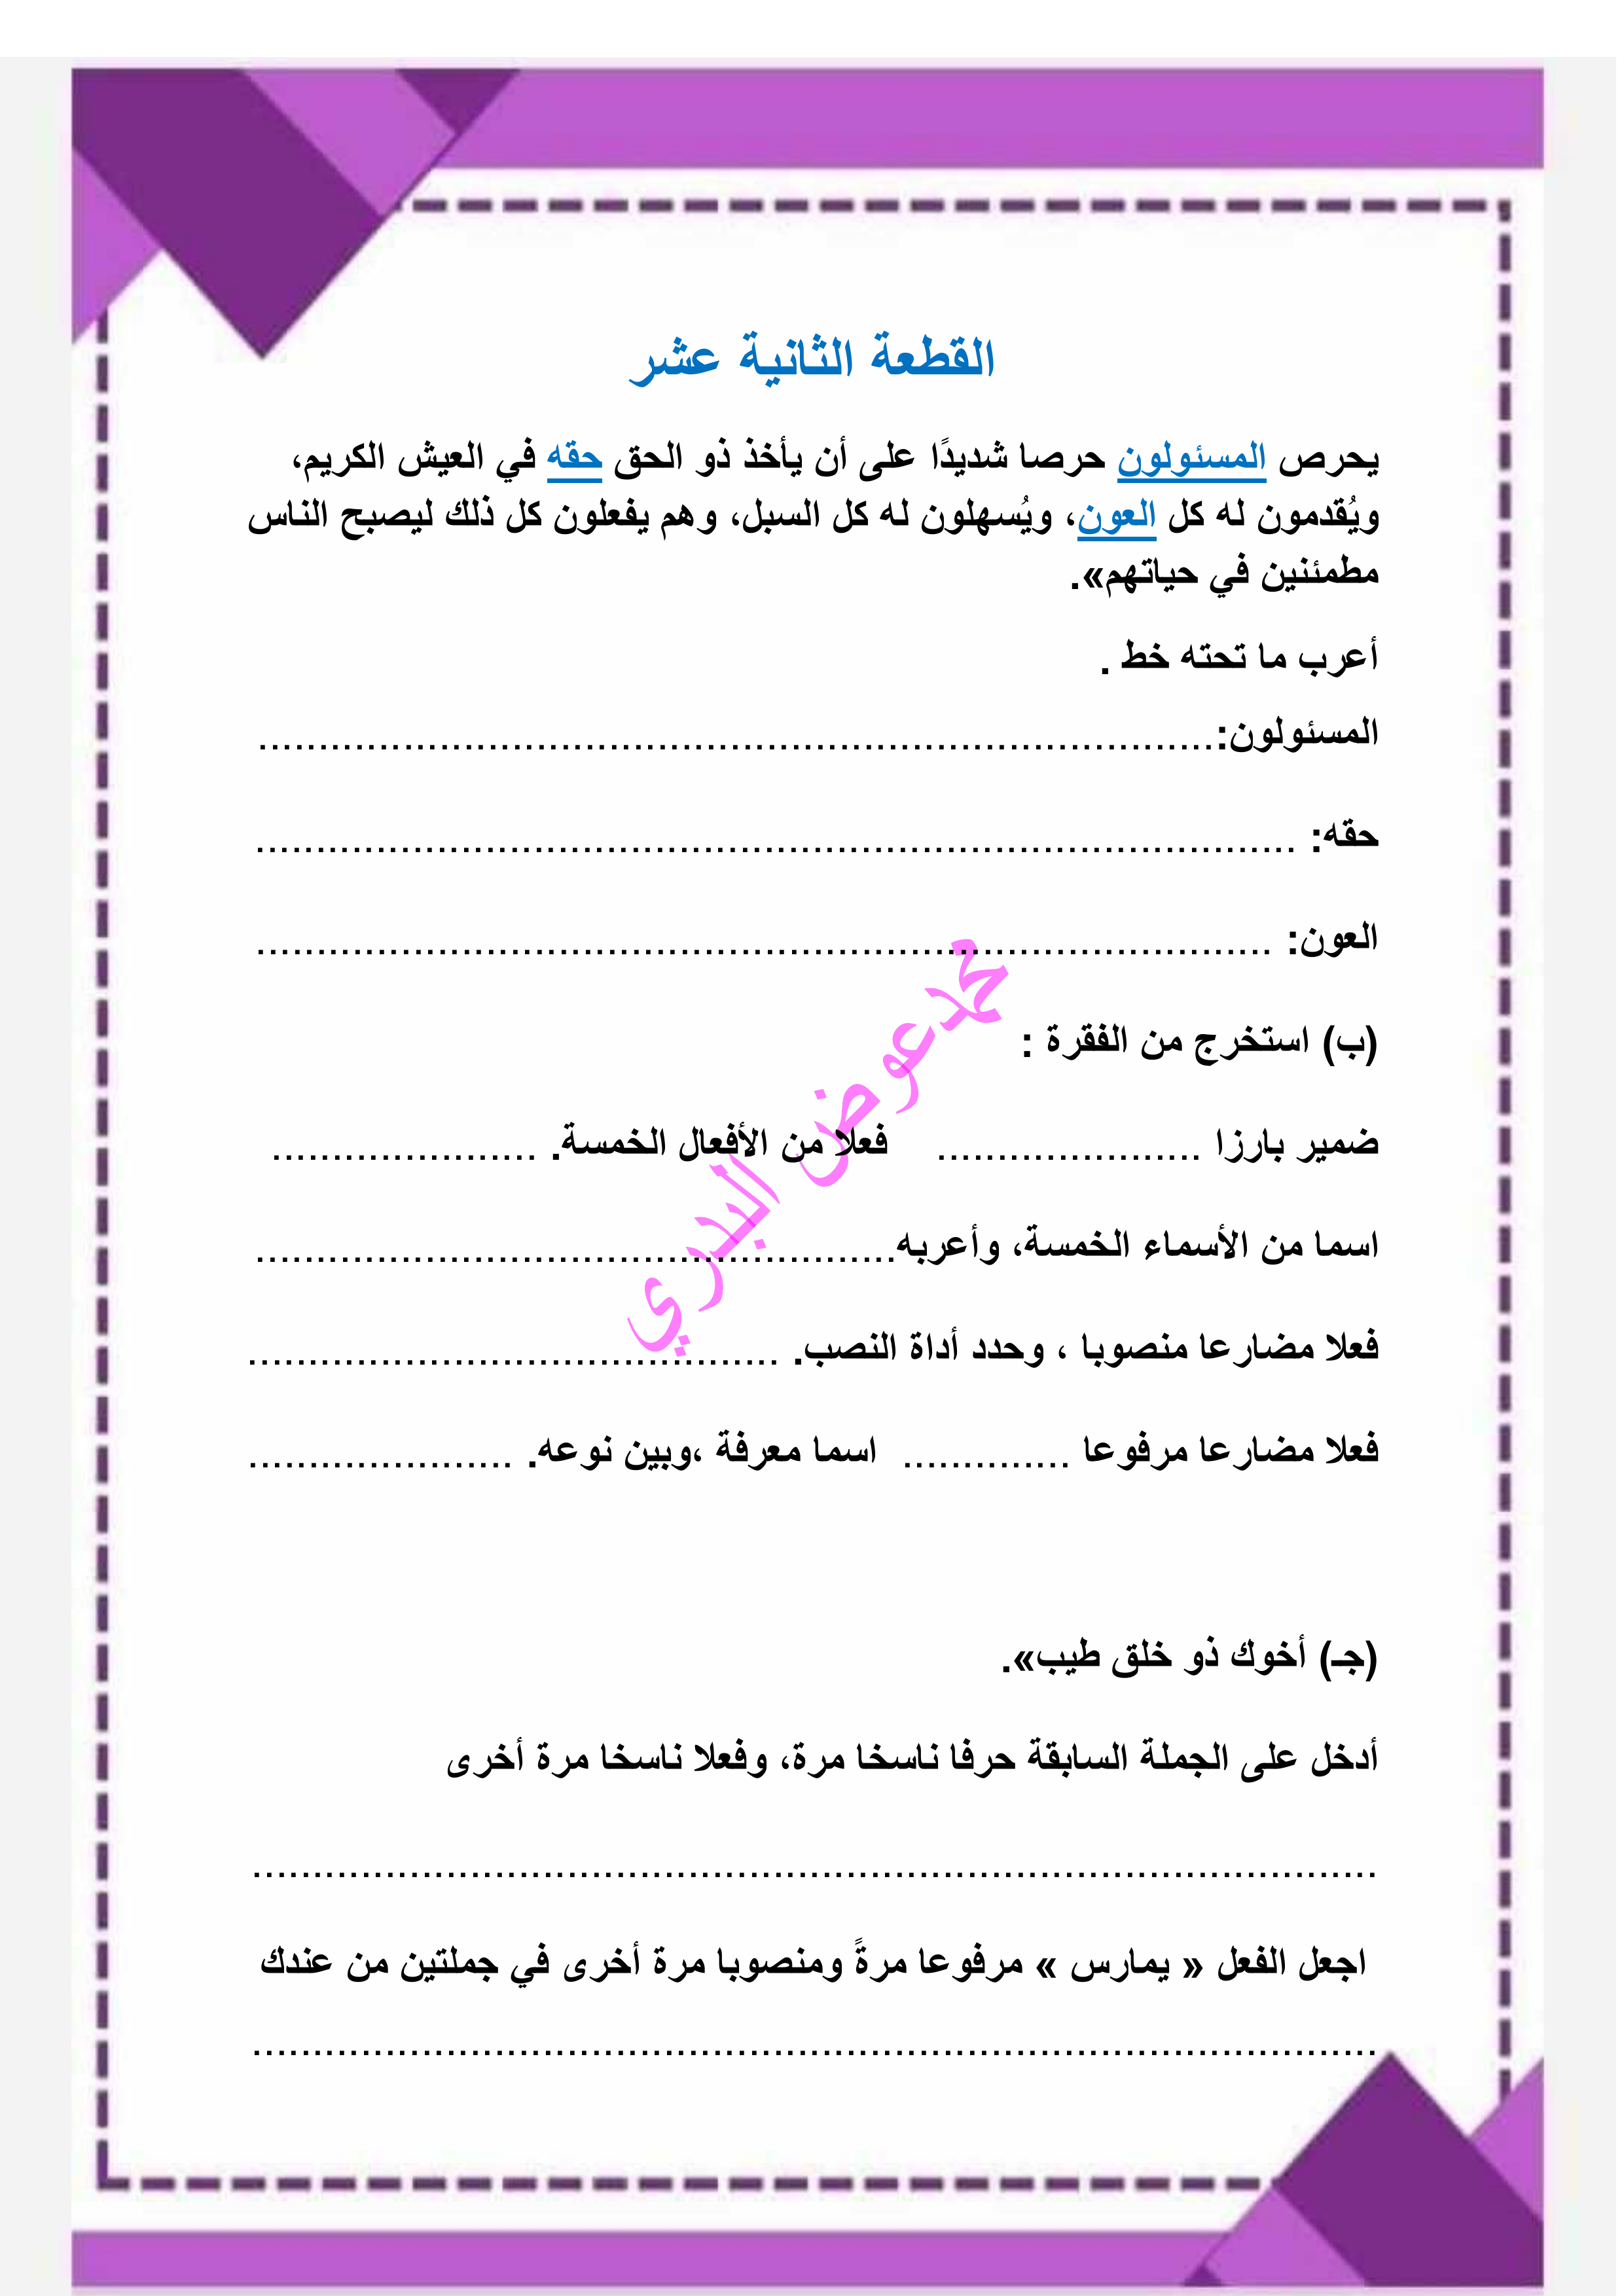 القطعة الثانية عشر
يحرص المسئولون حرصا شديدًا على أن يأخذ ذو الحق حقه في العيش الكريم،
ويُقدمون له كل العون، ويُسهلون له كل السبل، وهم يفعلون كل ذلك ليصبح الناس
مطمئنين في حياتهم».
أعرب ما تحته خط .
المسئولون:................................................................................
حقه: .......................................................................................
العون: .....................................................................................
(ب) استخرج من الفقرة :
ضمير بارزا ...................... فعلا من الأفعال الخمسة. ......................
اسما من الأسماء الخمسة، وأعربه.....................................................
فعلا مضارعا منصوبا ، وحدد أداة النصب. ............................................
فعلا مضارعا مرفوعا .............. اسما معرفة ،وبين نوعه. ......................
(جـ) أخوك ذو خلق طيب».
أدخل على الجملة السابقة حرفا ناسخا مرة، وفعلا ناسخا مرة أخرى
..............................................................................................
اجعل الفعل « يمارس » مرفوعا مرةً ومنصوبا مرة أخرى في جملتين من عندك
..............................................................................................
محمد عوض البدري